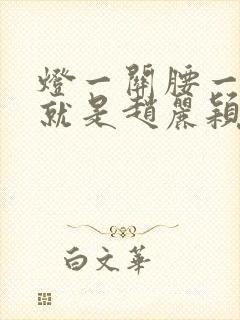 燈一關腰一
就是趙麗穎
白文華